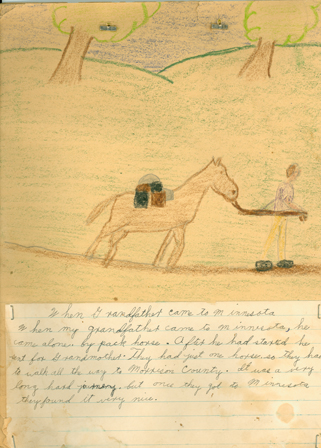 When Grandfather came to Minnesota
When my grandfather came to Minnesota, he
came alone by pack horse. After he had started he
set for Grandmother. They had just one horse, so they had
to walk all the way to Morrison County. It was a very
long hard journey, but once they got to Minnesota
they found it very nice.